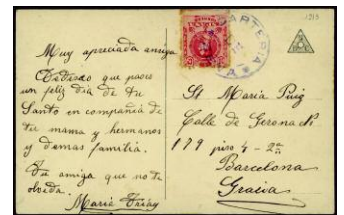 Muy apreciada amiga
Te deseo que pases
un feliz dia de tu
Santo en compañia de
tu mama y hermanos
y demas familia.
Tu amiga que no te
olvida.
Maria
1913
CARTERIA
Sta Maria Puig
Calle de Gerona nº
179 piso 4 - 2ª
Barcelona
Gracia